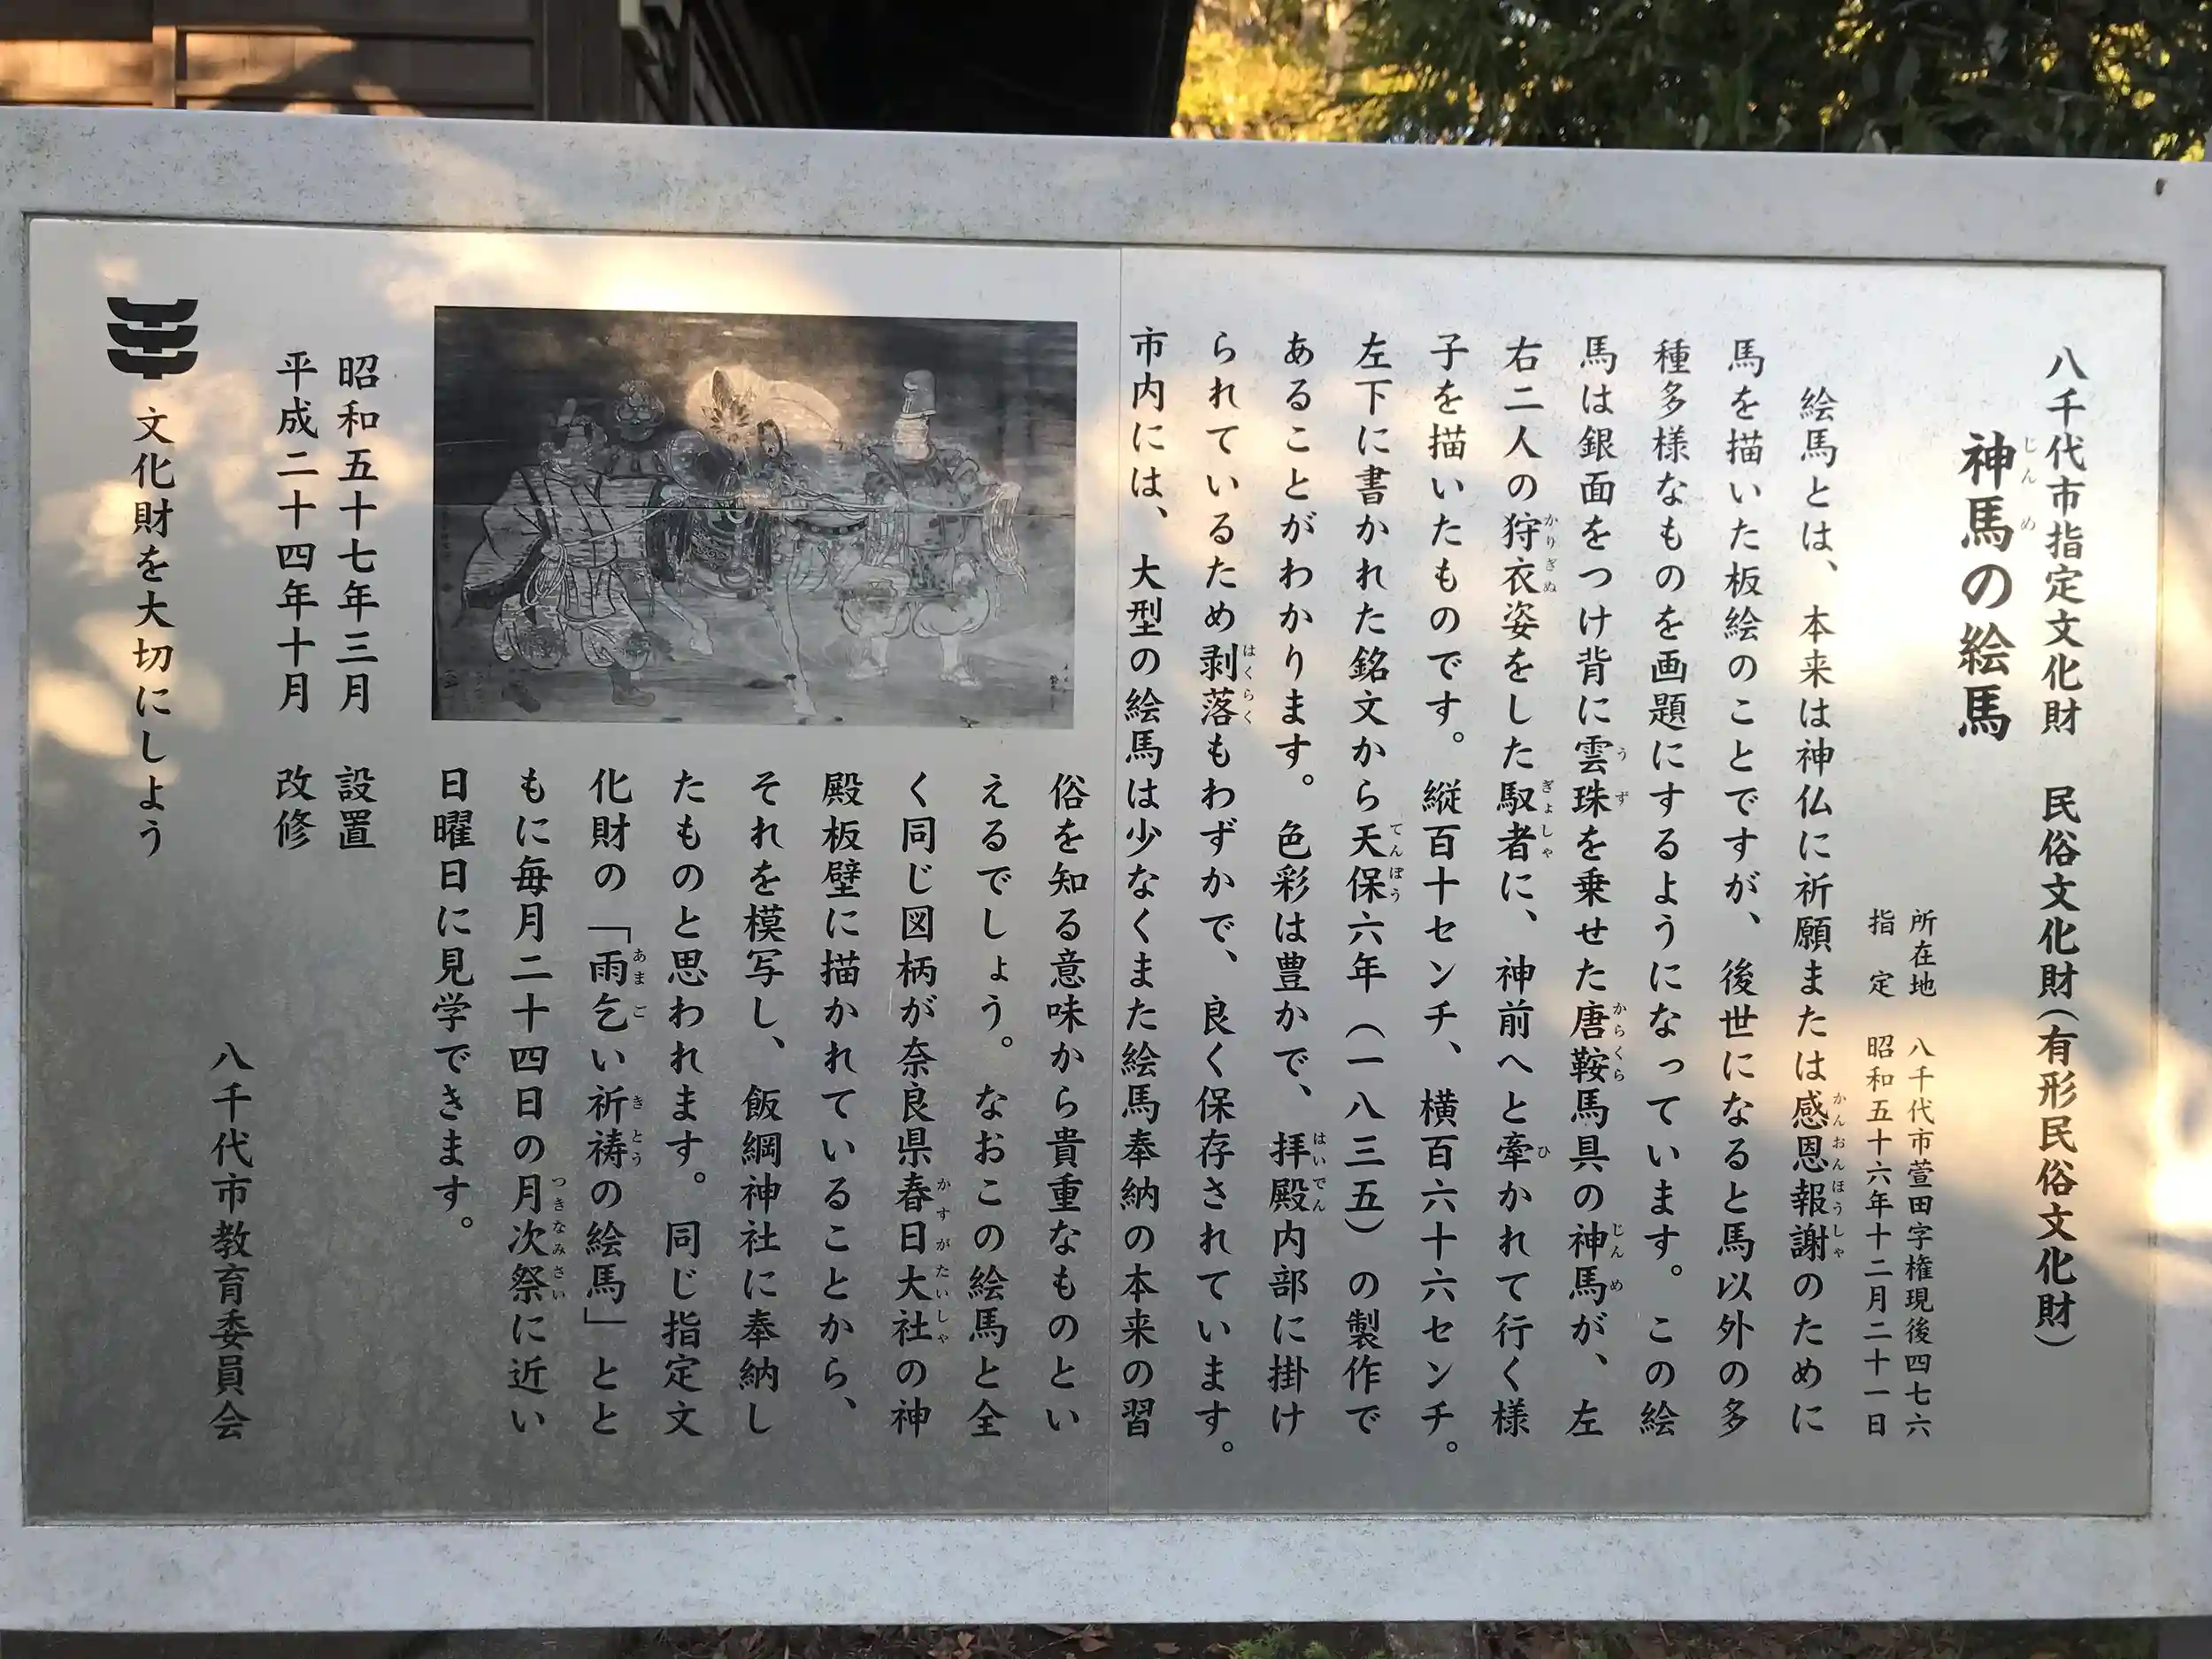 八千代市指定文化財　民俗文化財（有形民俗文化財）
神馬の絵馬
じんめ
所在地　八千代市萱田字権現後四七六
指　定　昭和五十六年十二月二十一日
絵馬とは、本来は神仏に祈願または感恩報謝のために
かんおんほうしゃ
馬を描いた板絵のことですが、後世になると馬以外の多
種多様なものを画題にするようになっています。この絵
馬は銀面をつけ背に雲珠を乗せた唐鞍馬具の神馬が、左
うず　からくら　じんめ
右二人の狩衣姿をした馭者に、神前へと牽かれて行く様
かりぎぬ　ぎょしゃ　ひ
子を描いたものです。縦百十センチ、横百六十六センチ。
左下に書かれた銘文から天保六年（一八三五）の製作で
てんぽう
あることがわかります。色彩は豊かで、拝殿内部に掛け
はいでん
られているため剥落もわずかで、良く保存されています。
はくらく
市内には、大型の絵馬は少なくまた絵馬奉納の本来の習
俗を知る意味から貴重なものとい
えるでしょう。なおこの絵馬と全
く同じ図柄が奈良県春日大社の神
かすがたいしゃ
殿板壁に描かれていることから、
それを模写し、飯綱神社に奉納し
たものと思われます。同じ指定文
化財の「雨乞い祈祷の絵馬」とと
あまご　きとう
もに毎月二十四日の月次祭に近い
つきなみさい
日曜日に見学できます。
昭和五十七年三月　設置
平成二十四年十月　改修
八千代市教育委員会
文化財を大切にしよう